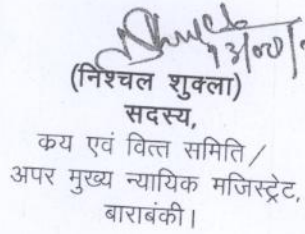 (निश्चल शुक्ला)
सदस्य,
कय एवं वित्त समिति /
अपर मुख्य न्यायिक मजिस्ट्रेट,
बाराबंकी।